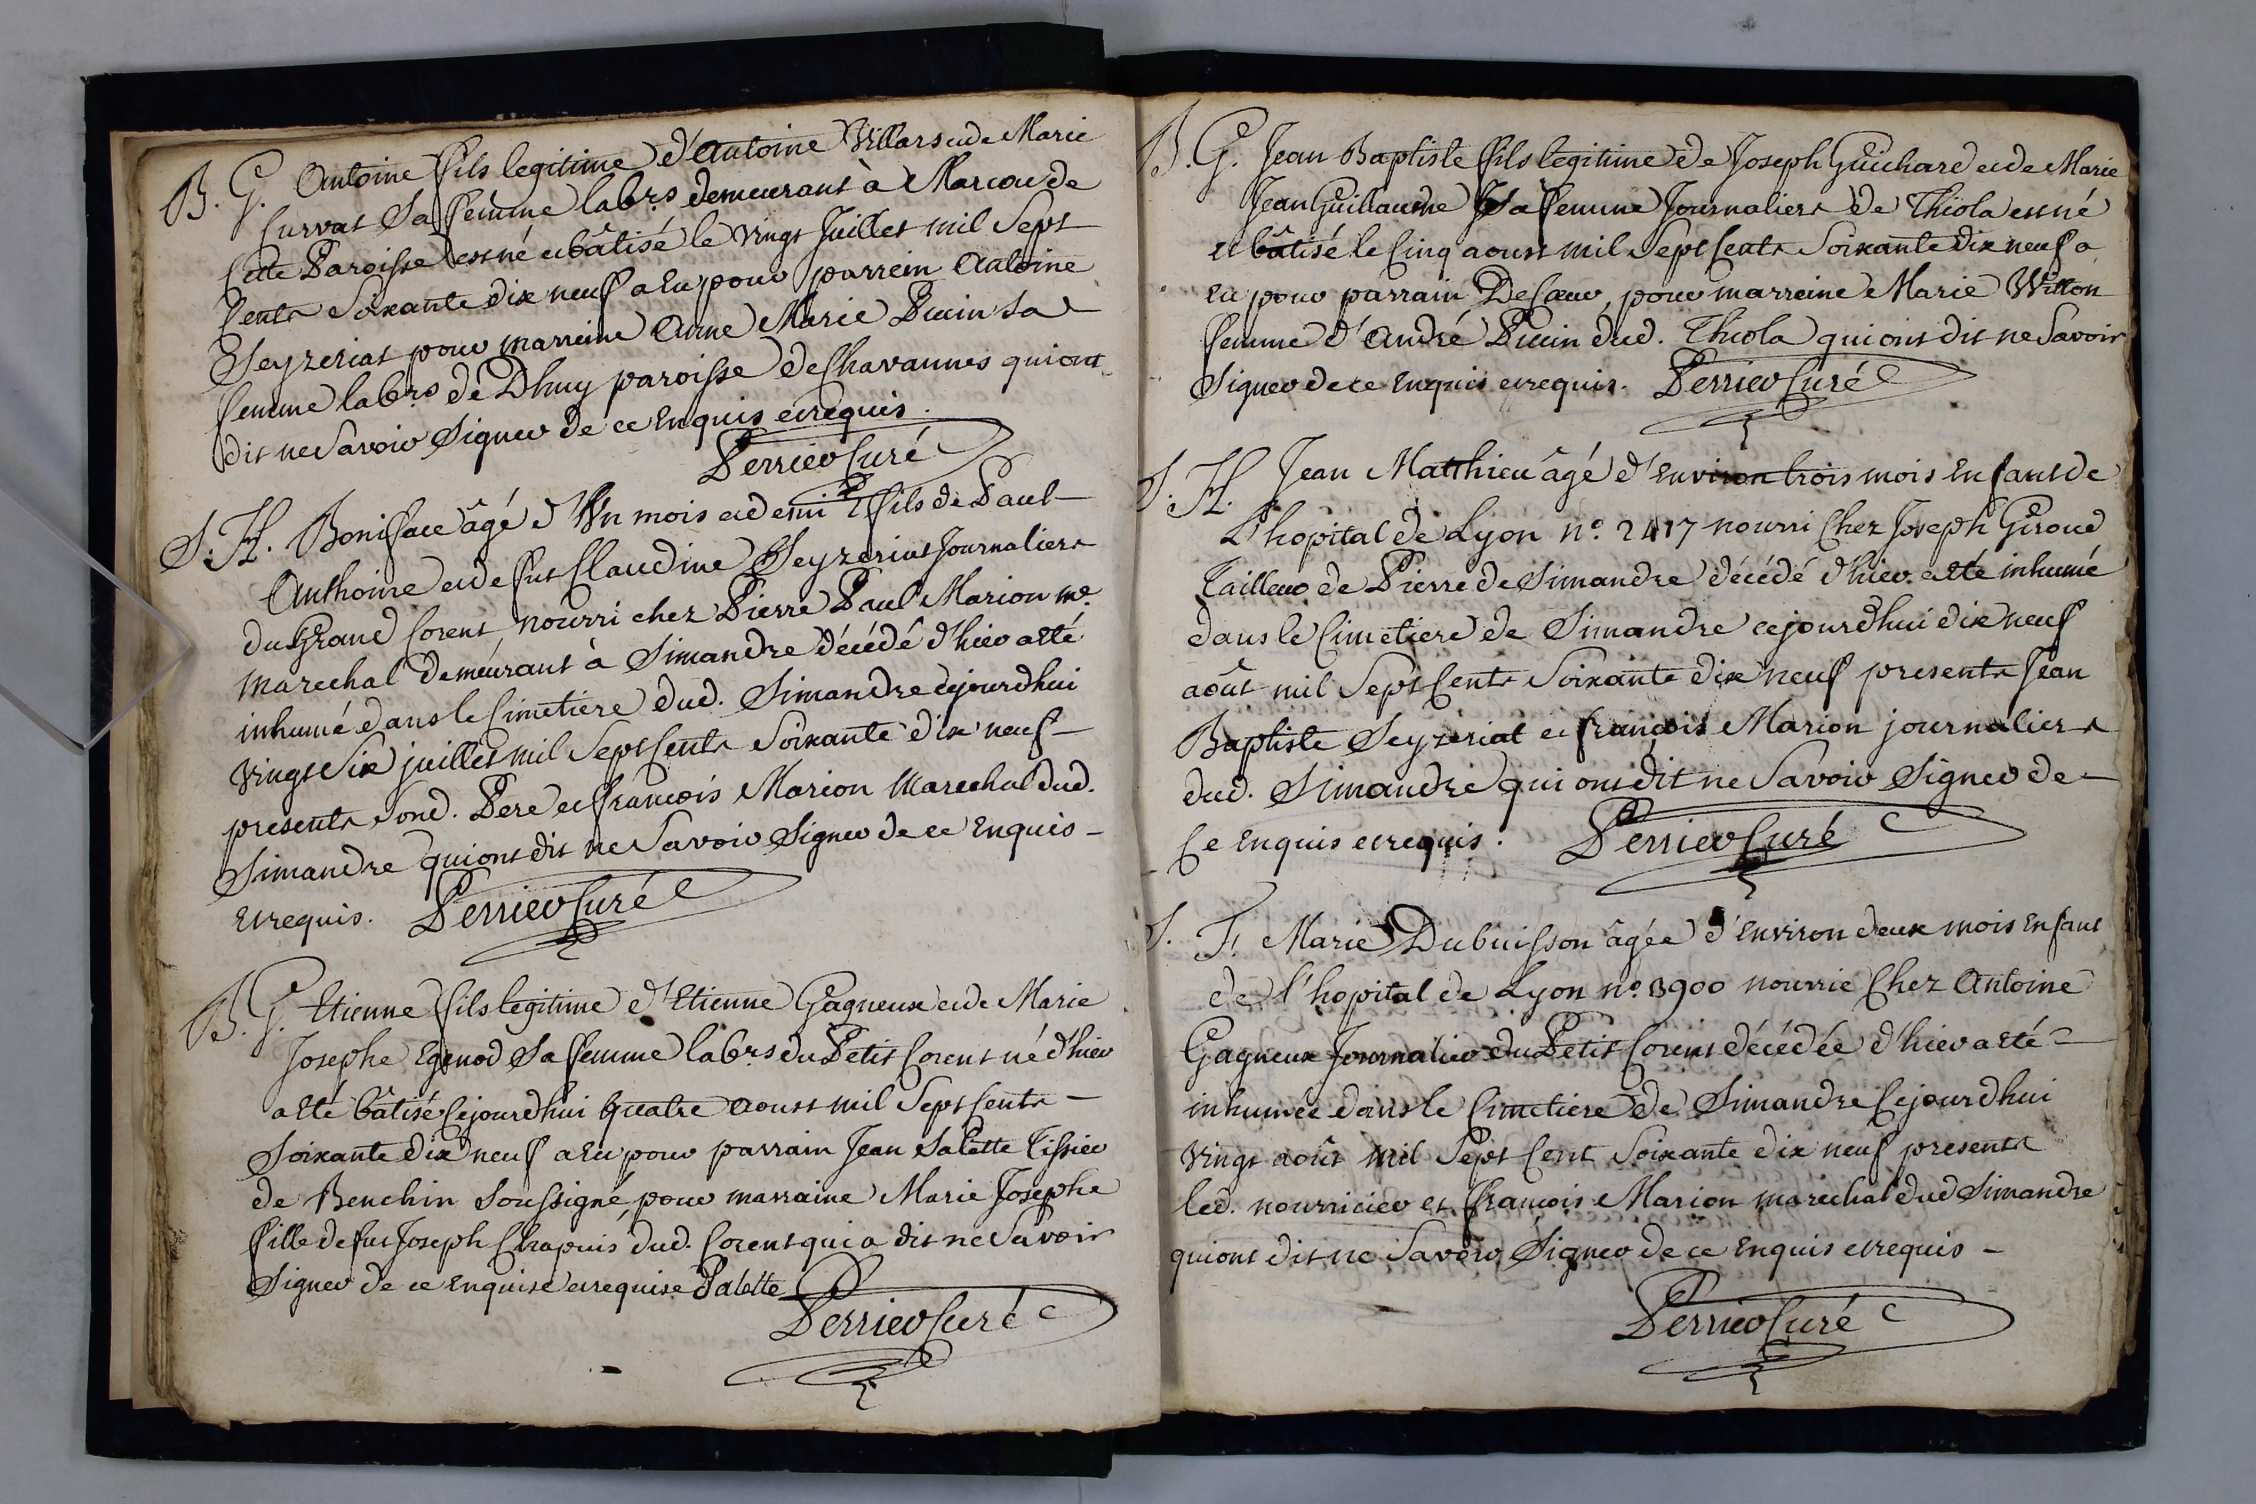 B. G. Antoine fils legitime d'Antoine Villars et de Marie
Curvat Sa femme labrs demeurant à Marcou de
Cette Paroisse est né et bâtisé le vingt Juillet mil Sept
Cents Soixante dix neuf a Eu pour parrein Antoine
Seyzeriat pour marreine Anne Marie Puin Sa
femme labrs de Dhuy paroisse de Chavannes qui ont
dit ne Savoir Signer de ce Enquis et requis.
Perrier Curé
S. H. Boniface âgé d'Un mois et demi fils de Paul
Anthoine et de fut Claudine Seyzeriat Journaliers
du Grand Corent, nourri chez Pierre Paul Marion me.
marechal demeurant à Simandre décédé d'hier a Eté
inhumé dans le Cimetiere dud. Simandre cejourdhui
vingt Six juillet mil Sept Cents Soixante dix neuf
presents Sond. Pere et françois Marion Marechal dud.
Simandre qui ont dit ne Savoir Signer de ce Enquis
et requis. Perrier Curé
B. G. Etienne fils legitime d'Etienne Gagneux et de Marie
Josephe Egenod Sa femme labrs du Petit Corent né d'hier
a Eté bâtisé Cejourdhui quatre aoust mil Sept Cents
Soixante dix neuf a Eu pour parrain Jean Palette Tissier
de Benchin Soussigné, pour marraine Marie Josephe
fille de fut Joseph Chapuis dud. Corent qui a dit ne Savoir
Signer de ce Enquise et requise Palette
Perrier Curé
B. G. Jean Baptiste fils legitime de Joseph Guichard et de Marie
Jean Guillaume Sa femme Journaliers de Thiola est né
et bâtisé le Cinq aoust mil Sept Cents Soixante dix neuf a
Eu pour parrain De Coeur, pour marreine Marie Vitton
femme d'André Puin dud. Thiola qui ont dit ne Savoir
Signer de ce Enquis et requis. Perrier Curé
S. H. Jean Matthieu âgé d'Environ trois mois Enfant de
L'hopital de Lyon no. 2417 nourri Chez Joseph Giroud
Tailleur de Pierre de Simandre décédé d'hier a Eté inhumé
dans le Cimetiere de Simandre cejourdhui dix neuf
août mil Sept Cents Soixante dix neuf presents Jean
Baptiste Seyzeriat et françois Marion journaliers
dud. Simandre qui ont dit ne Savoir Signer de
Ce Enquis et requis. Perrier Curé
S. F. Marie Dubuisson âgée d'Environ deux mois Enfant
de l'hopital de Lyon no. 3900 nourrie Chez Antoine
Gagneux Journalier du Petit Corent décédée d'hier a Eté
inhumée dans le Cimetiere de Simandre Cejourdhui
vingt août mil Sept Cent Soixante dix neuf presents
led. nourricier et françois Marion marechal dud Simandre
qui ont dit ne Savoir Signer de ce Enquis et requis
Perrier Curé